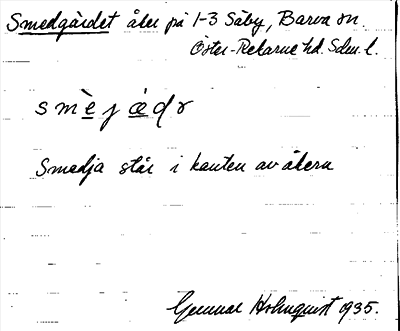 Smedgärdet åker på 1-3 Säby, Barva sn.
Öster-Rekarne hd. Sdm. l.
s m è j æ d r
Smedja står i kanten av åkern
Gunnar Holmquist 1935.